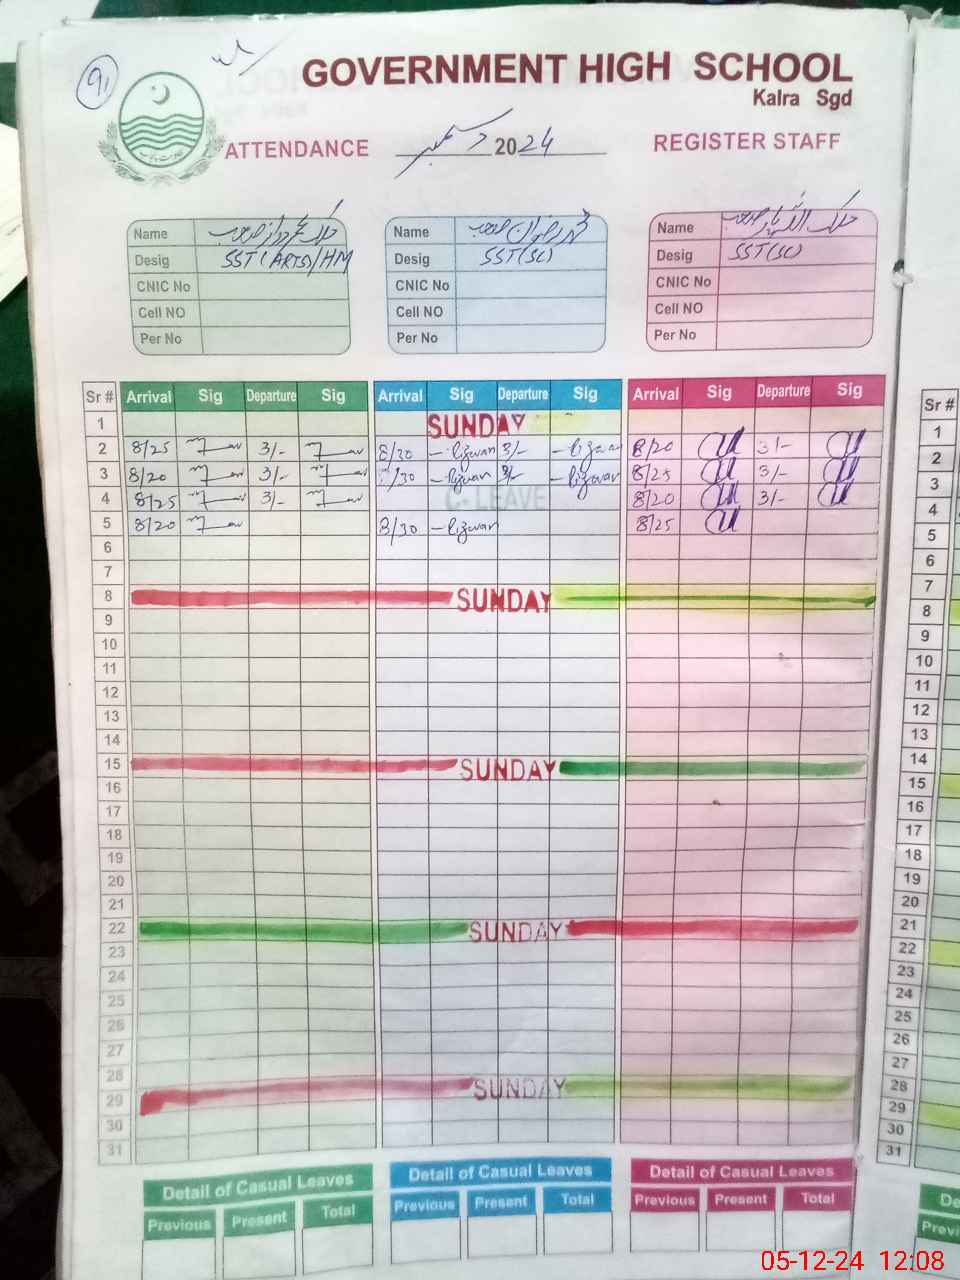 91
GOVERNMENT HIGH SCHOOL
Kalra Sgd
ATTENDANCE دسمبر 2024 REGISTER STAFF
Name ملک صاحب
Desig SST(ARTS)/HM
CNIC No
Cell NO
Per No
Name محمد رضوان صاحب
Desig SST(SC)
CNIC No
Cell NO
Per No
Name ملک اللہ یار صاحب
Desig SST(SC)
CNIC No
Cell NO
Per No
Sr # Arrival Sig Departure Sig Arrival Sig Departure Sig Arrival Sig Departure Sig
1 SUNDAY
2 8/25 3/- 8/30 Rizwan 3/- Rizwan 8/20 3/-
3 8/20 3/- /30 Rizwan 3/- Rizwan 8/25 3/-
4 8/25 3/- C-LEAVE 8/20 3/-
5 8/20 8/30 Rizwan 8/25
6
7
8 SUNDAY
9
10
11
12
13
14
15 SUNDAY
16
17
18
19
20
21
22 SUNDAY
23
24
25
26
27
28
29 SUNDAY
30
31
Detail of Casual Leaves Detail of Casual Leaves Detail of Casual Leaves
Previous Present Total Previous Present Total Previous Present Total
Sr #
1
2
3
4
5
6
7
8
9
10
11
12
13
14
15
16
17
18
19
20
21
22
23
24
25
26
27
28
29
30
31
De
Previ
05-12-24 12:08